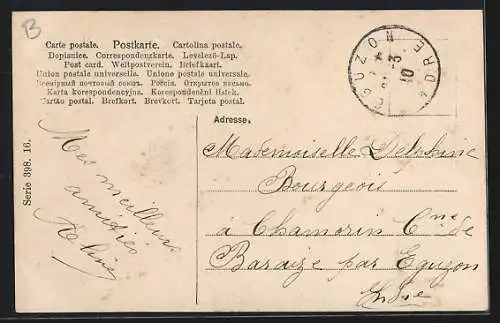 B
Carte postale. Postkarte. Cartolina postale.
Dopisnice. Correspondenzkarte. Levelező-Lap.
Post card. Weltpostverein. Briefkaart.
Union postale universelle. Unione postale universale.
Всемірный почтовый союз. Россія. Открытое письмо.
Karta korespondencyjna. Korespondenční listek.
Cartão postal. Brefkort. Brevkort. Tarjeta postal.
EGUZON
INDRE
-3
10
Adresse.
Serie 398. 16.
Mes meilleures
amitiés
Mademoiselle Delphine
Bourgeois
à Chamorin Cne de
Baraize par Eguzon
Indre